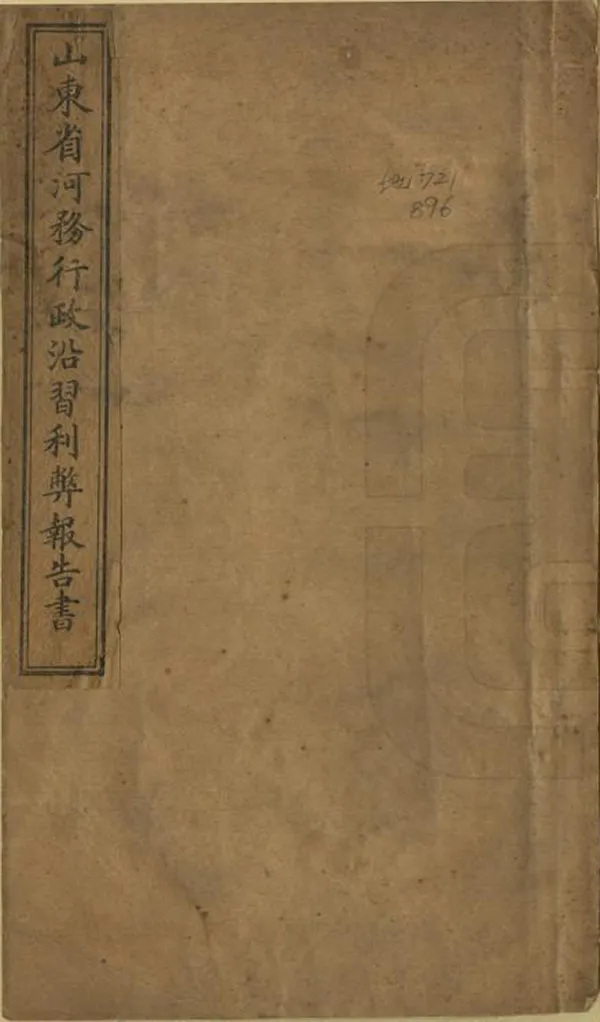 山東省河務行政沿習利弊報告書
地721
896